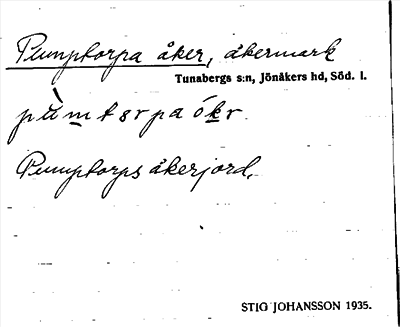 Pumptorpa åker, åkermark
Tunabergs s:n, Jönåkers hd, Söd. l.
pùmtɔrpa ókr
Pumptorps åkerjord.
STIG JOHANSSON 1935.